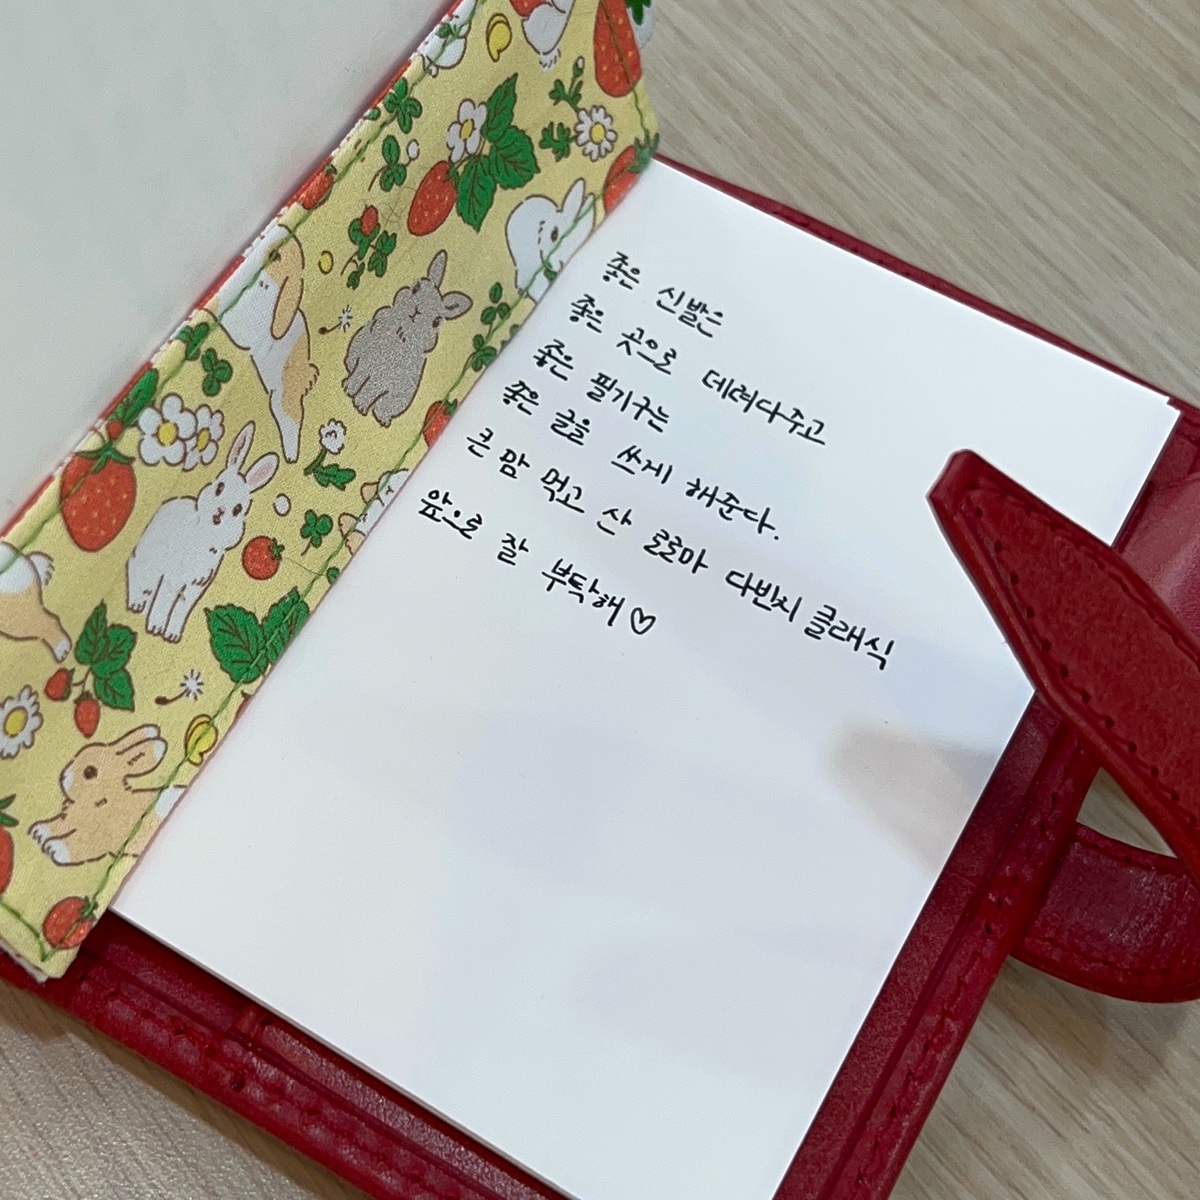 좋은 신발은
좋은 곳으로 데려다주고
좋은 필기구는
좋은 글을 쓰게 해준다.
큰 맘 먹고 산 로로마 다빈치 클래식
앞으로 잘 부탁해♡